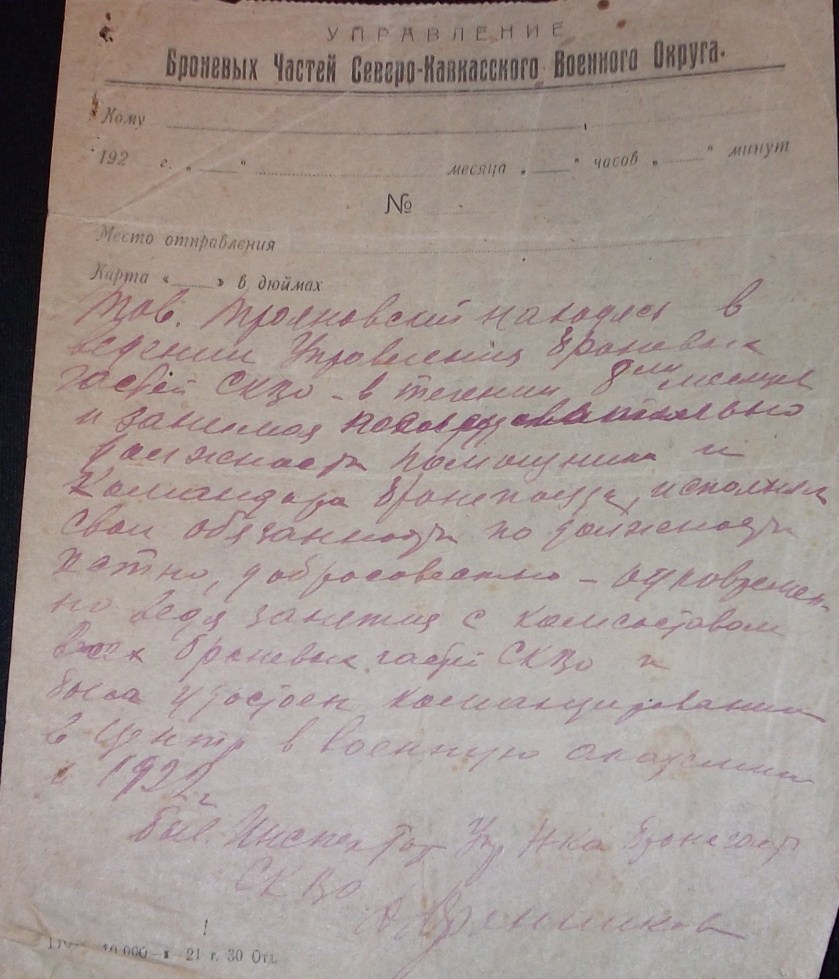 УПРАВЛЕНИЕ
Броневых Частей Северо-Кавкасского Военного Округа.
Кому
192 г. „ “ месяца „ “ часов „ “ минут
№
Место отправления
Карта « » в дюймах
Тов. Трояновский находясь в
ведении Управления Броневых
частей СКВО - в течении 8ми месяцев
и занимая последовательно
должности помощника и
Командира Бронепоезда, исполнял
свои обязанности по должности
честно, добросовестно - одновремен-
но ведя занятия с комсоставом
всех броневых частей СКВО и
был удостоен командирования
в центр в военную академию
в 1922 г.
Был Инспектор Упр Нка Бронечаст
СКВО
10.000—x 21 г. 30 Отд.